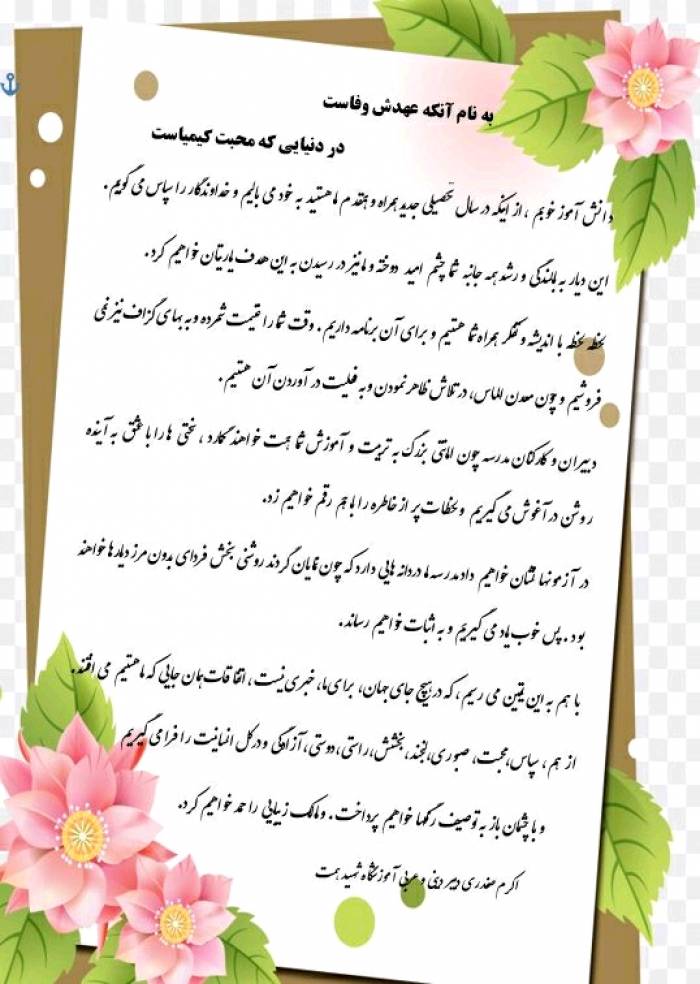 به نام آنکه عهدش وفاست
در دنیایی که محبت کیمیاست
دانش آموز خوبم ، از اینکه در سال تحصیلی جدید همراه و همقدم ما هستید به خود می بالیم و خداوندگار را سپاس می گویم.
این دیار به بالندگی و رشد همه جانبه شما چشم امید دوخته و ما نیز در رسیدن به این هدف یاریتان خواهیم کرد.
لحظه لحظه با اندیشه و تفکر همراه شما هستیم و برای آن برنامه داریم. وقت شما را غنیمت شمرده و به بهای گزاف نیز نمی
فروشیم و چون معدن الماس، در تلاش ظاهر نمودن و به فعلیت در آوردن آن هستیم.
دبیران و کارکنان مدرسه چون امانتی بزرگ به تربیت و آموزش شما همت خواهند گمارد ، سختی ها را با عشق به آینده
روشن در آغوش می گیریم و لحظات پر از خاطره را با هم رقم خواهیم زد.
در آزمونها نشان خواهیم داد مدرسه ما دردانه هایی دارد که چون نمایان گردند روشنی بخش فردای بدون مرز دیارها خواهند
بود . پس خوب یاد می گیریم و به اثبات خواهیم رساند.
با هم به این یقین می رسیم ، که در هیچ جای جهان، برای ما، خبری نیست ، اتفاقات همان جایی که ما هستیم می افتد.
از هم ، سپاس،محبت، صبوری،لبخند، بخشش،راستی،دوستی، آزادگی و در کل انسانیت را فرا می گیریم
و با چشمان باز به توصیف رنگها خواهیم پرداخت. و مالک زیبایی را حمد خواهیم کرد.
اکرم صفدری دبیر دینی و عربی آموزشگاه شهید همت